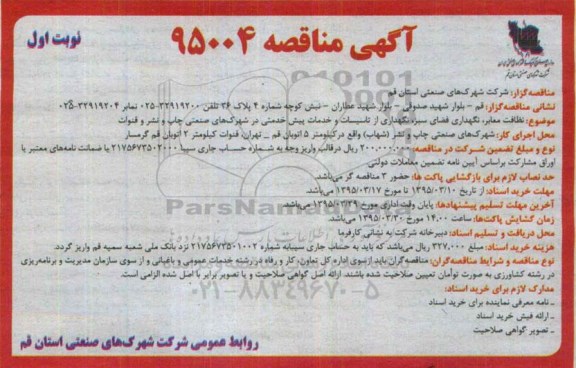 آگهی مناقصه ۹۵۰۰۴
نوبت اول
مناقصه‌گزار: شرکت شهرک‌های صنعتی استان قم
نشانی مناقصه‌گزار: قم - بلوار شهید صدوقی - بلوار شهید عطاران - نبش کوچه شماره ۴ پلاک ۳۶ تلفن ۳۲۹۱۹۲۰۰-۰۲۵ نمابر ۳۲۹۱۹۲۰۴-۰۲۵
موضوع: نظافت معابر، نگهداری فضای سبز، نگهداری از تاسیسات و خدمات پیش خدمتی در شهرک‌های صنعتی چاپ و نشر و قنوات
محل اجرای کار: شهرک‌های صنعتی چاپ و نشر (شهاب) واقع در کیلومتر ۵ اتوبان قم _ تهران، قنوات کیلومتر ۲ اتوبان قم گرمسار
نوع و مبلغ تضمین شرکت در مناقصه: ۲۰۰،۰۰۰،۰۰۰ ریال در قالب واریز وجه به شماره حساب جاری سیبا ۲۱۷۵۶۷۳۵۰۲۰۰۰ یا ضمانت نامه‌های معتبر یا اوراق مشارکت براساس آیین نامه تضمین معاملات دولتی
حد نصاب لازم برای بازگشایی پاکت ها: حضور ۳ مناقصه گر می‌باشد.
مهلت خرید اسناد: از تاریخ ۱۳۹۵/۰۳/۱۰ تا مورخ ۱۳۹۵/۰۳/۱۷ می‌باشد.
آخرین مهلت تسلیم پیشنهادها: پایان وقت اداری مورخ ۱۳۹۵/۰۳/۲۹ می‌باشد.
زمان گشایش پاکت‌ها: ساعت ۱۴،۰۰ مورخ ۱۳۹۵/۰۳/۳۰ می‌باشد.
محل دریافت و تسلیم اسناد: دبیرخانه شرکت به نشانی کارفرما
هزینه خرید اسناد: مبلغ ۳۲۷،۰۰۰ ریال می‌باشد که باید به حساب جاری سیبا به شماره ۲۱۷۵۶۷۳۵۰۱۰۰۲ نزد بانک ملی شعبه سمیه قم واریز گردد.
نوع مناقصه و شرایط مناقصه‌گران: مناقصه‌گران باید از سوی اداره کل تعاون، کار و رفاه در رشته خدمات عمومی و باغبانی و از سوی سازمان مدیریت و برنامه‌ریزی در رشته کشاورزی به صورت توأمان تعیین صلاحیت شده باشند. ارائه اصل گواهی صلاحیت و یا تصویر برابر با اصل شده الزامی است.
مدارک لازم برای خرید اسناد:
ـ نامه معرفی نماینده برای خرید اسناد
ـ ارائه فیش خرید اسناد
ـ تصویر گواهی صلاحیت
روابط عمومی شرکت شهرک‌های صنعتی استان قم
ParsNamadData
۰۲۱-۸۸۳۴۹۶۷۰-۵